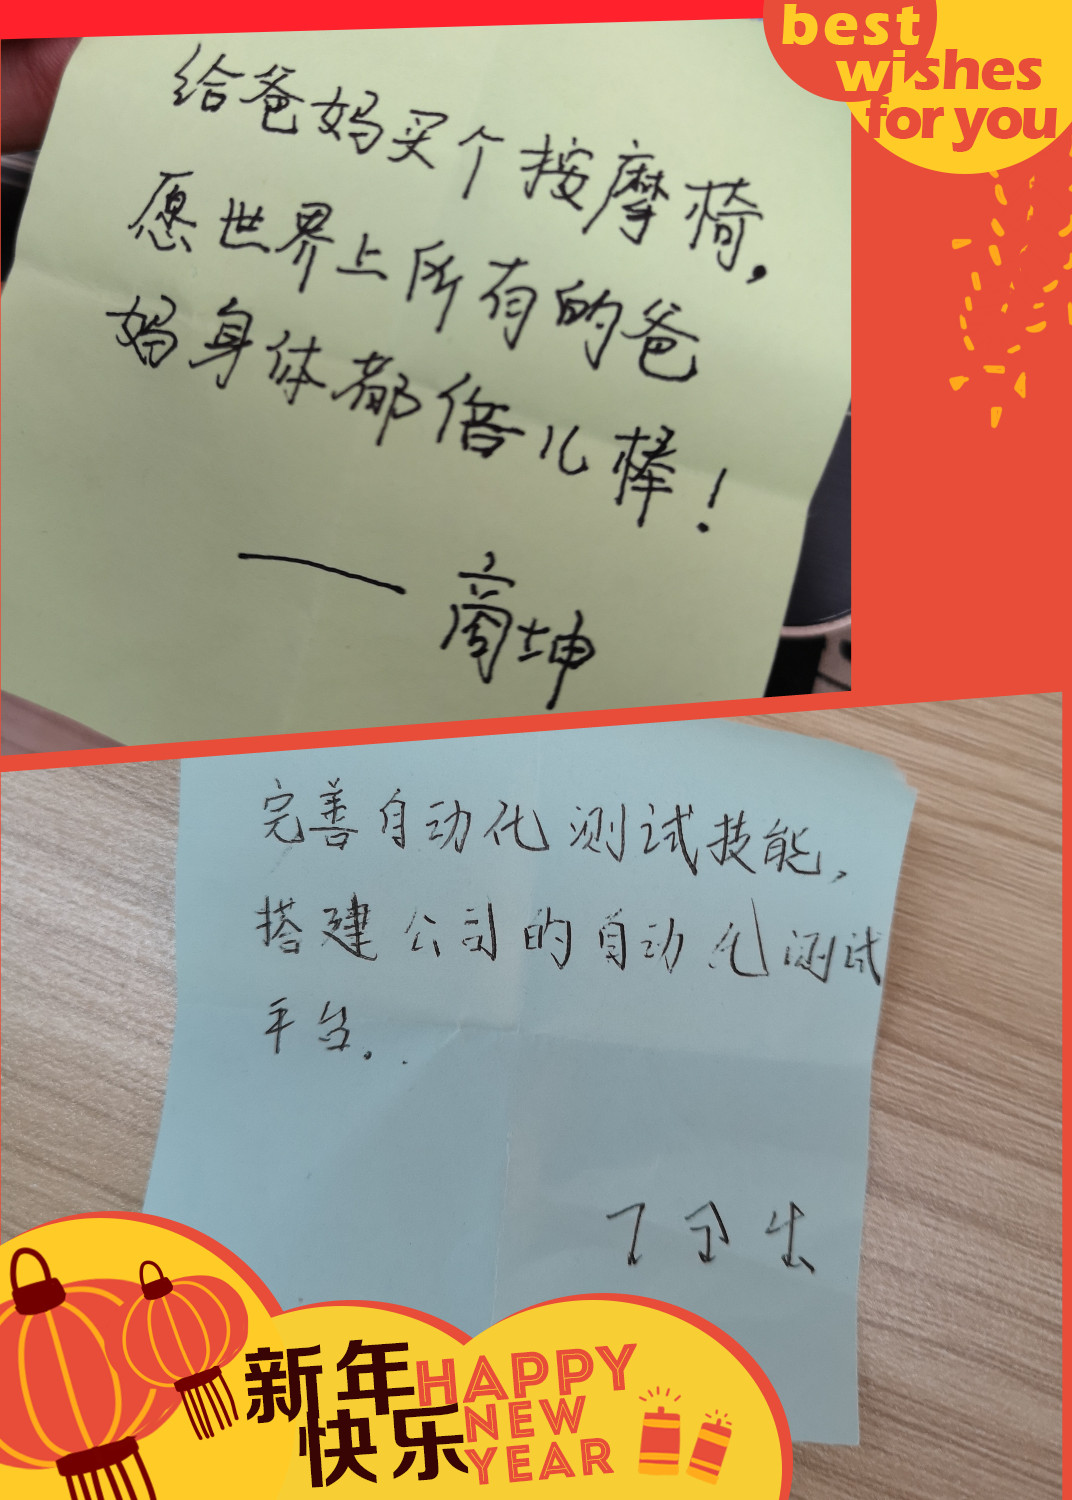 best
wishes
for you
给爸妈买个按摩椅,
愿世界上所有的爸
妈身体都倍儿棒!
—— 商坤
完善自动化测试技能,
搭建公司的自动化测试
平台...
新年
快乐
HAPPY
NEW
YEAR